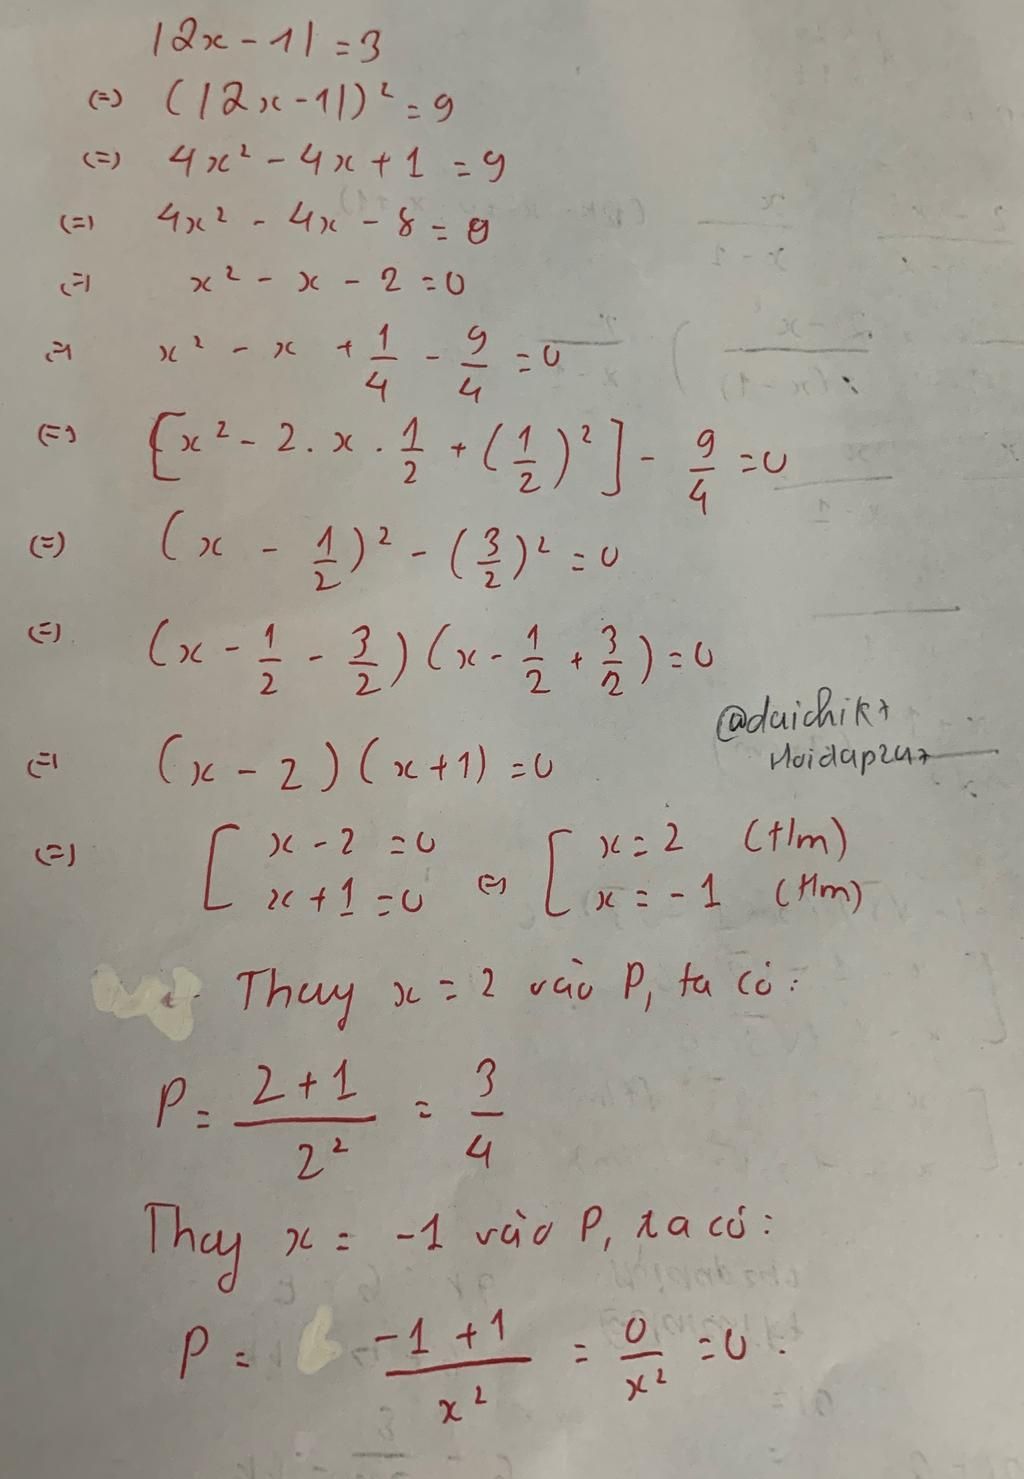 |2x - 1| = 3
(=) (|2x - 1|)² = 9
(=) 4x² - 4x + 1 = 9
(=) 4x² - 4x - 8 = 0
(=) x² - x - 2 = 0
(=) x² - x + 1/4 - 9/4 = 0
(=) [x² - 2 . x . 1/2 + (1/2)²] - 9/4 = 0
(=) (x - 1/2)² - (3/2)² = 0
(=) (x - 1/2 - 3/2)(x - 1/2 + 3/2) = 0
@daichik7
Hoidap247
(=) (x - 2)(x + 1) = 0
(=) [ x - 2 = 0 (=) [ x = 2 (t/m)
x + 1 = 0 x = -1 (t/m)
Thay x = 2 vào P, ta có:
P = (2 + 1)/2² = 3/4
Thay x = -1 vào P, ta có:
P = (-1 + 1)/x² = 0/x² = 0.